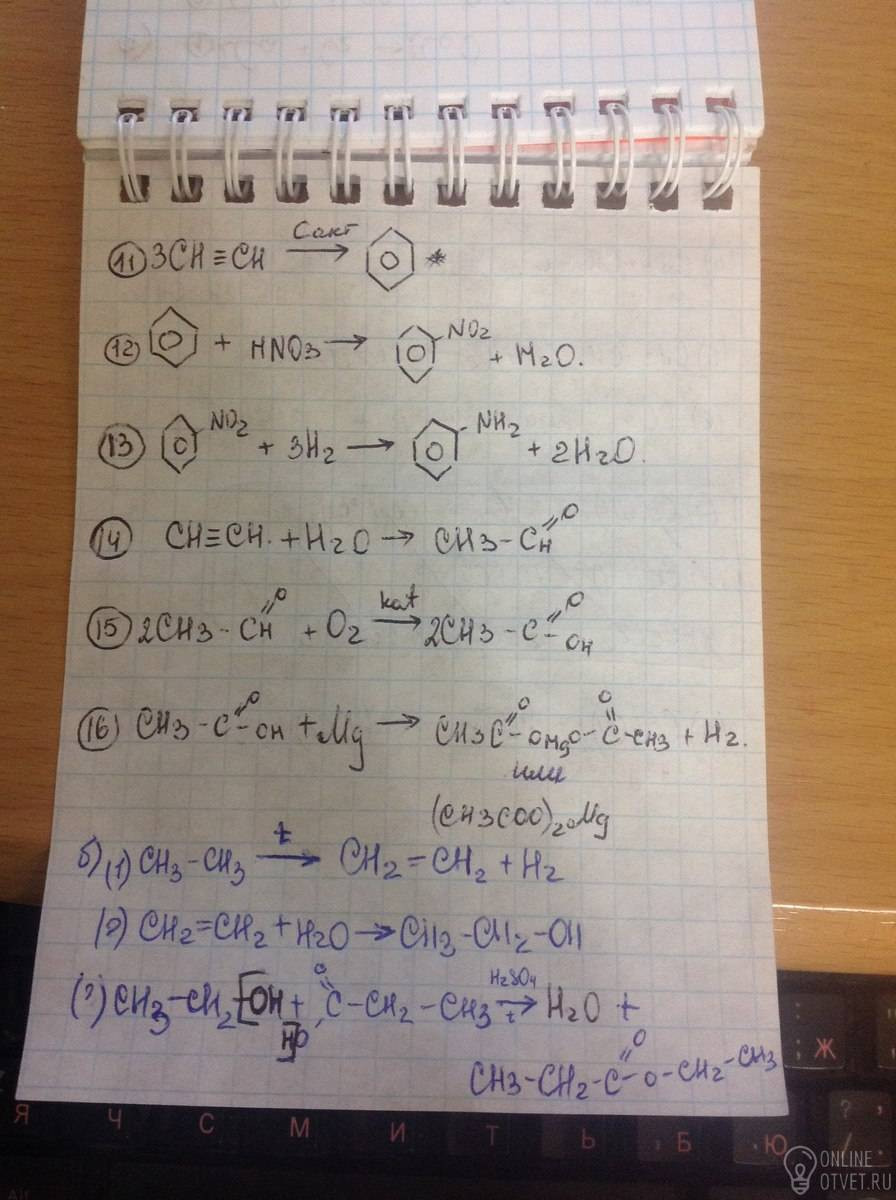 11 3CH≡CH Cакт → *
12 + HNO3 → NO2 + H2O.
13 NO2 + 3H2 → NH2 + 2H2O.
14 CH≡CH. + H2O → CH3-CH=O
15 2CH3-CH=O + O2 kat → 2CH3-C=O-OH
16 CH3-C=O-OH + Mg → CH3C=O-OMgO-C=O-CH3 + H2.
или
(CH3COO)2Mg
б) (1) CH3-CH3 t → CH2=CH2 + H2
(2) CH2=CH2 + H2O → CH3-CH2-OH
(3) CH3-CH2-OH + HO-C=O-CH2-CH3 H2SO4 t → H2O +
CH3-CH2-C=O-O-CH2-CH3
; Ж
:
Я Ч С М И Т Ь Б Ю ? /
ONLINE
OTVET.RU